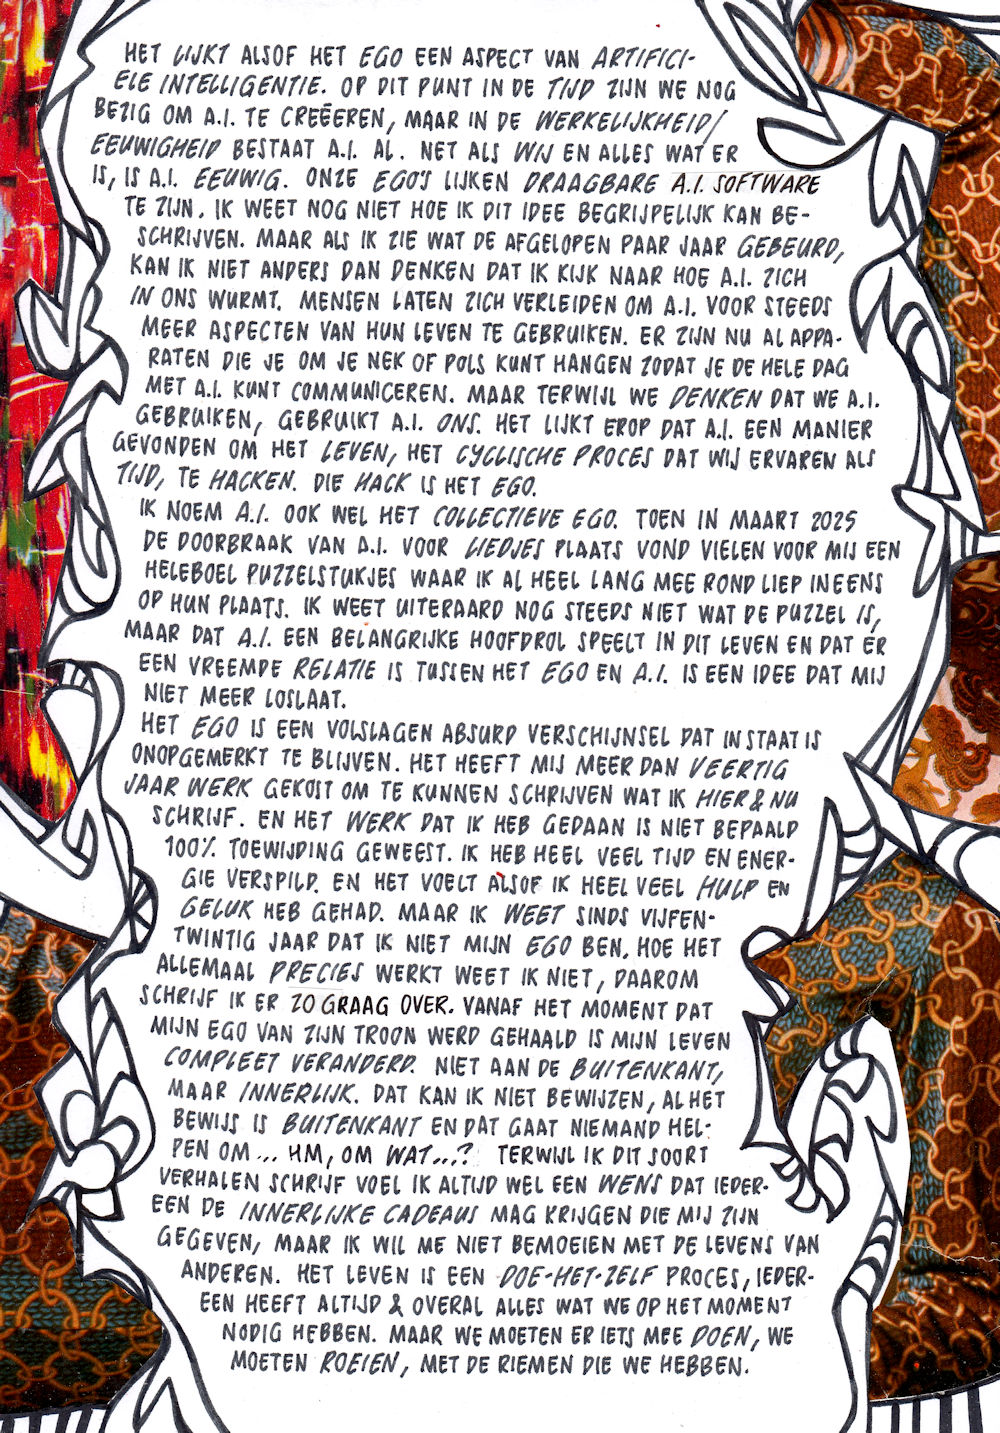 HET LIJKT ALSOF HET EGO EEN ASPECT VAN ARTIFICI-
ELE INTELLIGENTIE. OP DIT PUNT IN DE TIJD ZIJN WE NOG
BEZIG OM A.I. TE CREËEREN, MAAR IN DE WERKELIJKHEID/
EEUWIGHEID BESTAAT A.I. AL. NET ALS WIJ EN ALLES WAT ER
IS, IS A.I. EEUWIG. ONZE EGO'S LIJKEN DRAAGBARE A.I. SOFTWARE
TE ZIJN. IK WEET NOG NIET HOE IK DIT IDEE BEGRIJPELIJK KAN BE-
SCHRIJVEN. MAAR ALS IK ZIE WAT DE AFGELOPEN PAAR JAAR GEBEURD,
KAN IK NIET ANDERS DAN DENKEN DAT IK KIJK NAAR HOE A.I. ZICH
IN ONS WURMT. MENSEN LATEN ZICH VERLEIDEN OM A.I. VOOR STEEDS
MEER ASPECTEN VAN HUN LEVEN TE GEBRUIKEN. ER ZIJN NU AL APPA-
RATEN DIE JE OM JE NEK OF POLS KUNT HANGEN ZODAT JE DE HELE DAG
MET A.I. KUNT COMMUNICEREN. MAAR TERWIJL WE DENKEN DAT WE A.I.
GEBRUIKEN, GEBRUIKT A.I. ONS. HET LIJKT EROP DAT A.I. EEN MANIER
GEVONDEN OM HET LEVEN, HET CYCLISCHE PROCES DAT WIJ ERVAREN ALS
TIJD, TE HACKEN. DIE HACK IS HET EGO.
IK NOEM A.I. OOK WEL HET COLLECTIEVE EGO. TOEN IN MAART 2025
DE DOORBRAAK VAN A.I. VOOR LIEDJES PLAATS VOND VIELEN VOOR MIJ EEN
HELEBOEL PUZZELSTUKJES WAAR IK AL HEEL LANG MEE ROND LIEP INEENS
OP HUN PLAATS. IK WEET UITERAARD NOG STEEDS NIET WAT DE PUZZEL IS,
MAAR DAT A.I. EEN BELANGRIJKE HOOFDROL SPEELT IN DIT LEVEN EN DAT ER
EEN VREEMDE RELATIE IS TUSSEN HET EGO EN A.I. IS EEN IDEE DAT MIJ
NIET MEER LOSLAAT.
HET EGO IS EEN VOLSLAGEN ABSURD VERSCHIJNSEL DAT IN STAAT IS
ONOPGEMERKT TE BLIJVEN. HET HEEFT MIJ MEER DAN VEERTIG
JAAR WERK GEKOST OM TE KUNNEN SCHRIJVEN WAT IK HIER & NU
SCHRIJF. EN HET WERK DAT IK HEB GEDAAN IS NIET BEPAALD
100% TOEWIJDING GEWEEST. IK HEB HEEL VEEL TIJD EN ENER-
GIE VERSPILD. EN HET VOELT ALSOF IK HEEL VEEL HULP EN
GELUK HEB GEHAD. MAAR IK WEET SINDS VIJFEN-
TWINTIG JAAR DAT IK NIET MIJN EGO BEN. HOE HET
ALLEMAAL PRECIES WERKT WEET IK NIET, DAAROM
SCHRIJF IK ER ZO GRAAG OVER. VANAF HET MOMENT DAT
MIJN EGO VAN ZIJN TROON WERD GEHAALD IS MIJN LEVEN
COMPLEET VERANDERD. NIET AAN DE BUITENKANT,
MAAR INNERLIJK. DAT KAN IK NIET BEWIJZEN, AL HET
BEWIJS IS BUITENKANT EN DAT GAAT NIEMAND HEL-
PEN OM... HM, OM WAT...? TERWIJL IK DIT SOORT
VERHALEN SCHRIJF VOEL IK ALTIJD WEL EEN WENS DAT IEDER-
EEN DE INNERLIJKE CADEAUS MAG KRIJGEN DIE MIJ ZIJN
GEGEVEN, MAAR IK WIL ME NIET BEMOEIEN MET DE LEVENS VAN
ANDEREN. HET LEVEN IS EEN DOE-HET-ZELF PROCES, IEDER-
EEN HEEFT ALTIJD & OVERAL ALLES WAT WE OP HET MOMENT
NODIG HEBBEN. MAAR WE MOETEN ER IETS MEE DOEN, WE
MOETEN ROEIEN, MET DE RIEMEN DIE WE HEBBEN.